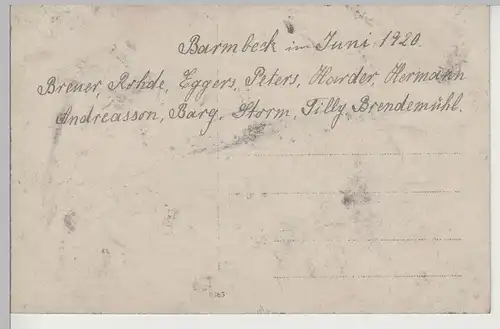 Barmbeck im Juni 1920.
Breuer, Rohde, Eggers, Peters, Harder, Hermann
Andreasson, Barg, Storm, Tilly, Brendemühl.